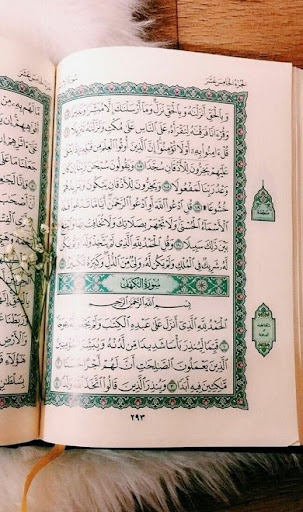 الجزء الخامس عشر
وَبِٱلۡحَقِّ أَنزَلۡنَٰهُ وَبِٱلۡحَقِّ نَزَلَۗ وَمَآ أَرۡسَلۡنَٰكَ إِلَّا مُبَشِّرٗا وَنَذِيرٗا ١٠٥
وَقُرۡءَانٗا فَرَقۡنَٰهُ لِتَقۡرَأَهُۥ عَلَى ٱلنَّاسِ عَلَىٰ مُكۡثٖ وَنَزَّلۡنَٰهُ تَنزِيلٗا ١٠٦
قُلۡ ءَامِنُواْ بِهِۦٓ أَوۡ لَا تُؤۡمِنُوٓاْۚ إِنَّ ٱلَّذِينَ أُوتُواْ ٱلۡعِلۡمَ مِن قَبۡلِهِۦٓ إِذَا يُتۡلَىٰ
عَلَيۡهِمۡ يَخِرُّونَ لِلۡأَذۡقَانِ سُجَّدٗاۤ ١٠٧ وَيَقُولُونَ سُبۡحَٰنَ رَبِّنَآ إِن كَانَ
وَعۡدُ رَبِّنَا لَمَفۡعُولٗا ١٠٨ وَيَخِرُّونَ لِلۡأَذۡقَانِ يَبۡكُونَ وَيَزِيدُهُمۡ
خُشُوعٗا۩ ١٠٩ قُلِ ٱدۡعُواْ ٱللَّهَ أَوِ ٱدۡعُواْ ٱلرَّحۡمَٰنَۖ أَيّٗا مَّا تَدۡعُواْ فَلَهُ
ٱلۡأَسۡمَآءُ ٱلۡحُسۡنَىٰۚ وَلَا تَجۡهَرۡ بِصَلَاتِكَ وَلَا تُخَافِتۡ بِهَا وَٱبۡتَغِ
بَيۡنَ ذَٰلِكَ سَبِيلٗا ١١٠ وَقُلِ ٱلۡحَمۡدُ لِلَّهِ ٱلَّذِي لَمۡ يَتَّخِذۡ وَلَدٗا وَلَمۡ يَكُن
لَّهُۥ شَرِيكٞ فِي ٱلۡمُلۡكِ وَلَمۡ يَكُن لَّهُۥ وَلِيّٞ مِّنَ ٱلذُّلِّۖ وَكَبِّرۡهُ تَكۡبِيرَۢا ١١١
سُورَةُ الكَهۡفِ
بِسۡمِ ٱللَّهِ ٱلرَّحۡمَٰنِ ٱلرَّحِيمِ
ٱلۡحَمۡدُ لِلَّهِ ٱلَّذِيٓ أَنزَلَ عَلَىٰ عَبۡدِهِ ٱلۡكِتَٰبَ وَلَمۡ يَجۡعَل لَّهُۥ عِوَجَاۜ ١
قَيِّمٗا لِّيُنذِرَ بَأۡسٗا شَدِيدٗا مِّن لَّدُنۡهُ وَيُبَشِّرَ ٱلۡمُؤۡمِنِينَ
ٱلَّذِينَ يَعۡمَلُونَ ٱلصَّٰلِحَٰتِ أَنَّ لَهُمۡ أَجۡرًا حَسَنٗا ٢
مَّٰكِثِينَ فِيهِ أَبَدٗا ٣ وَيُنذِرَ ٱلَّذِينَ قَالُواْ ٱتَّخَذَ ٱللَّهُ وَلَدٗا ٤
٢٩٣